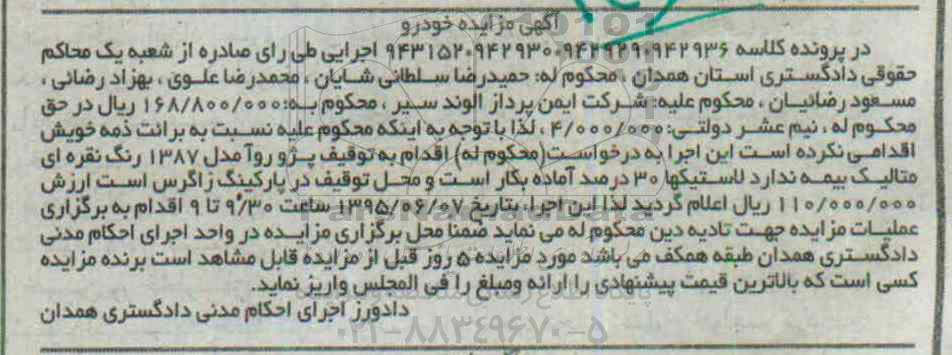 آگهی مزایده خودرو
در پرونده کلاسه ۹۴۲۹۳۶-۹۴۲۹۲۹-۹۴۲۹۳۰-۹۴۳۱۵۲ اجرایی طی رای صادره از شعبه یک محاکم
حقوقی دادگستری استان همدان ، محکوم له: حمیدرضا سلطانی شایان ، محمدرضا علوی ، بهزاد رضائی ،
مسعود رضائیان ، محکوم علیه: شرکت ایمن پرداز الوند سیر ، محکوم به: ۱۶۸/۸۰۰/۰۰۰ ریال در حق
محکوم له ، نیم عشر دولتی: ۴/۰۰۰/۰۰۰ ، لذا با توجه به اینکه محکوم علیه نسبت به برائت ذمه خویش
اقدامی نکرده است این اجرا به درخواست (محکوم له) اقدام به توقیف پژو روآ مدل ۱۳۸۷ رنگ نقره ای
متالیک بیمه ندارد لاستیکها ۳۰ درصد آماده بکار است و محل توقیف در پارکینگ زاگرس است ارزش
۱۱۰/۰۰۰/۰۰۰ ریال اعلام گردید لذا این اجرا، بتاریخ ۱۳۹۵/۰۶/۰۷ ساعت ۹/۳۰ تا ۹ اقدام به برگزاری
عملیات مزایده جهت تادیه دین محکوم له می نماید ضمنا محل برگزاری مزایده در واحد اجرای احکام مدنی
دادگستری همدان طبقه همکف می باشد مورد مزایده ۵ روز قبل از مزایده قابل مشاهد است برنده مزایده
کسی است که بالاترین قیمت پیشنهادی را ارائه ومبلغ را فی المجلس واریز نماید.
دادورز اجرای احکام مدنی دادگستری همدان
۰۲۱-۸۸۳۴۹۶۷۰-۵